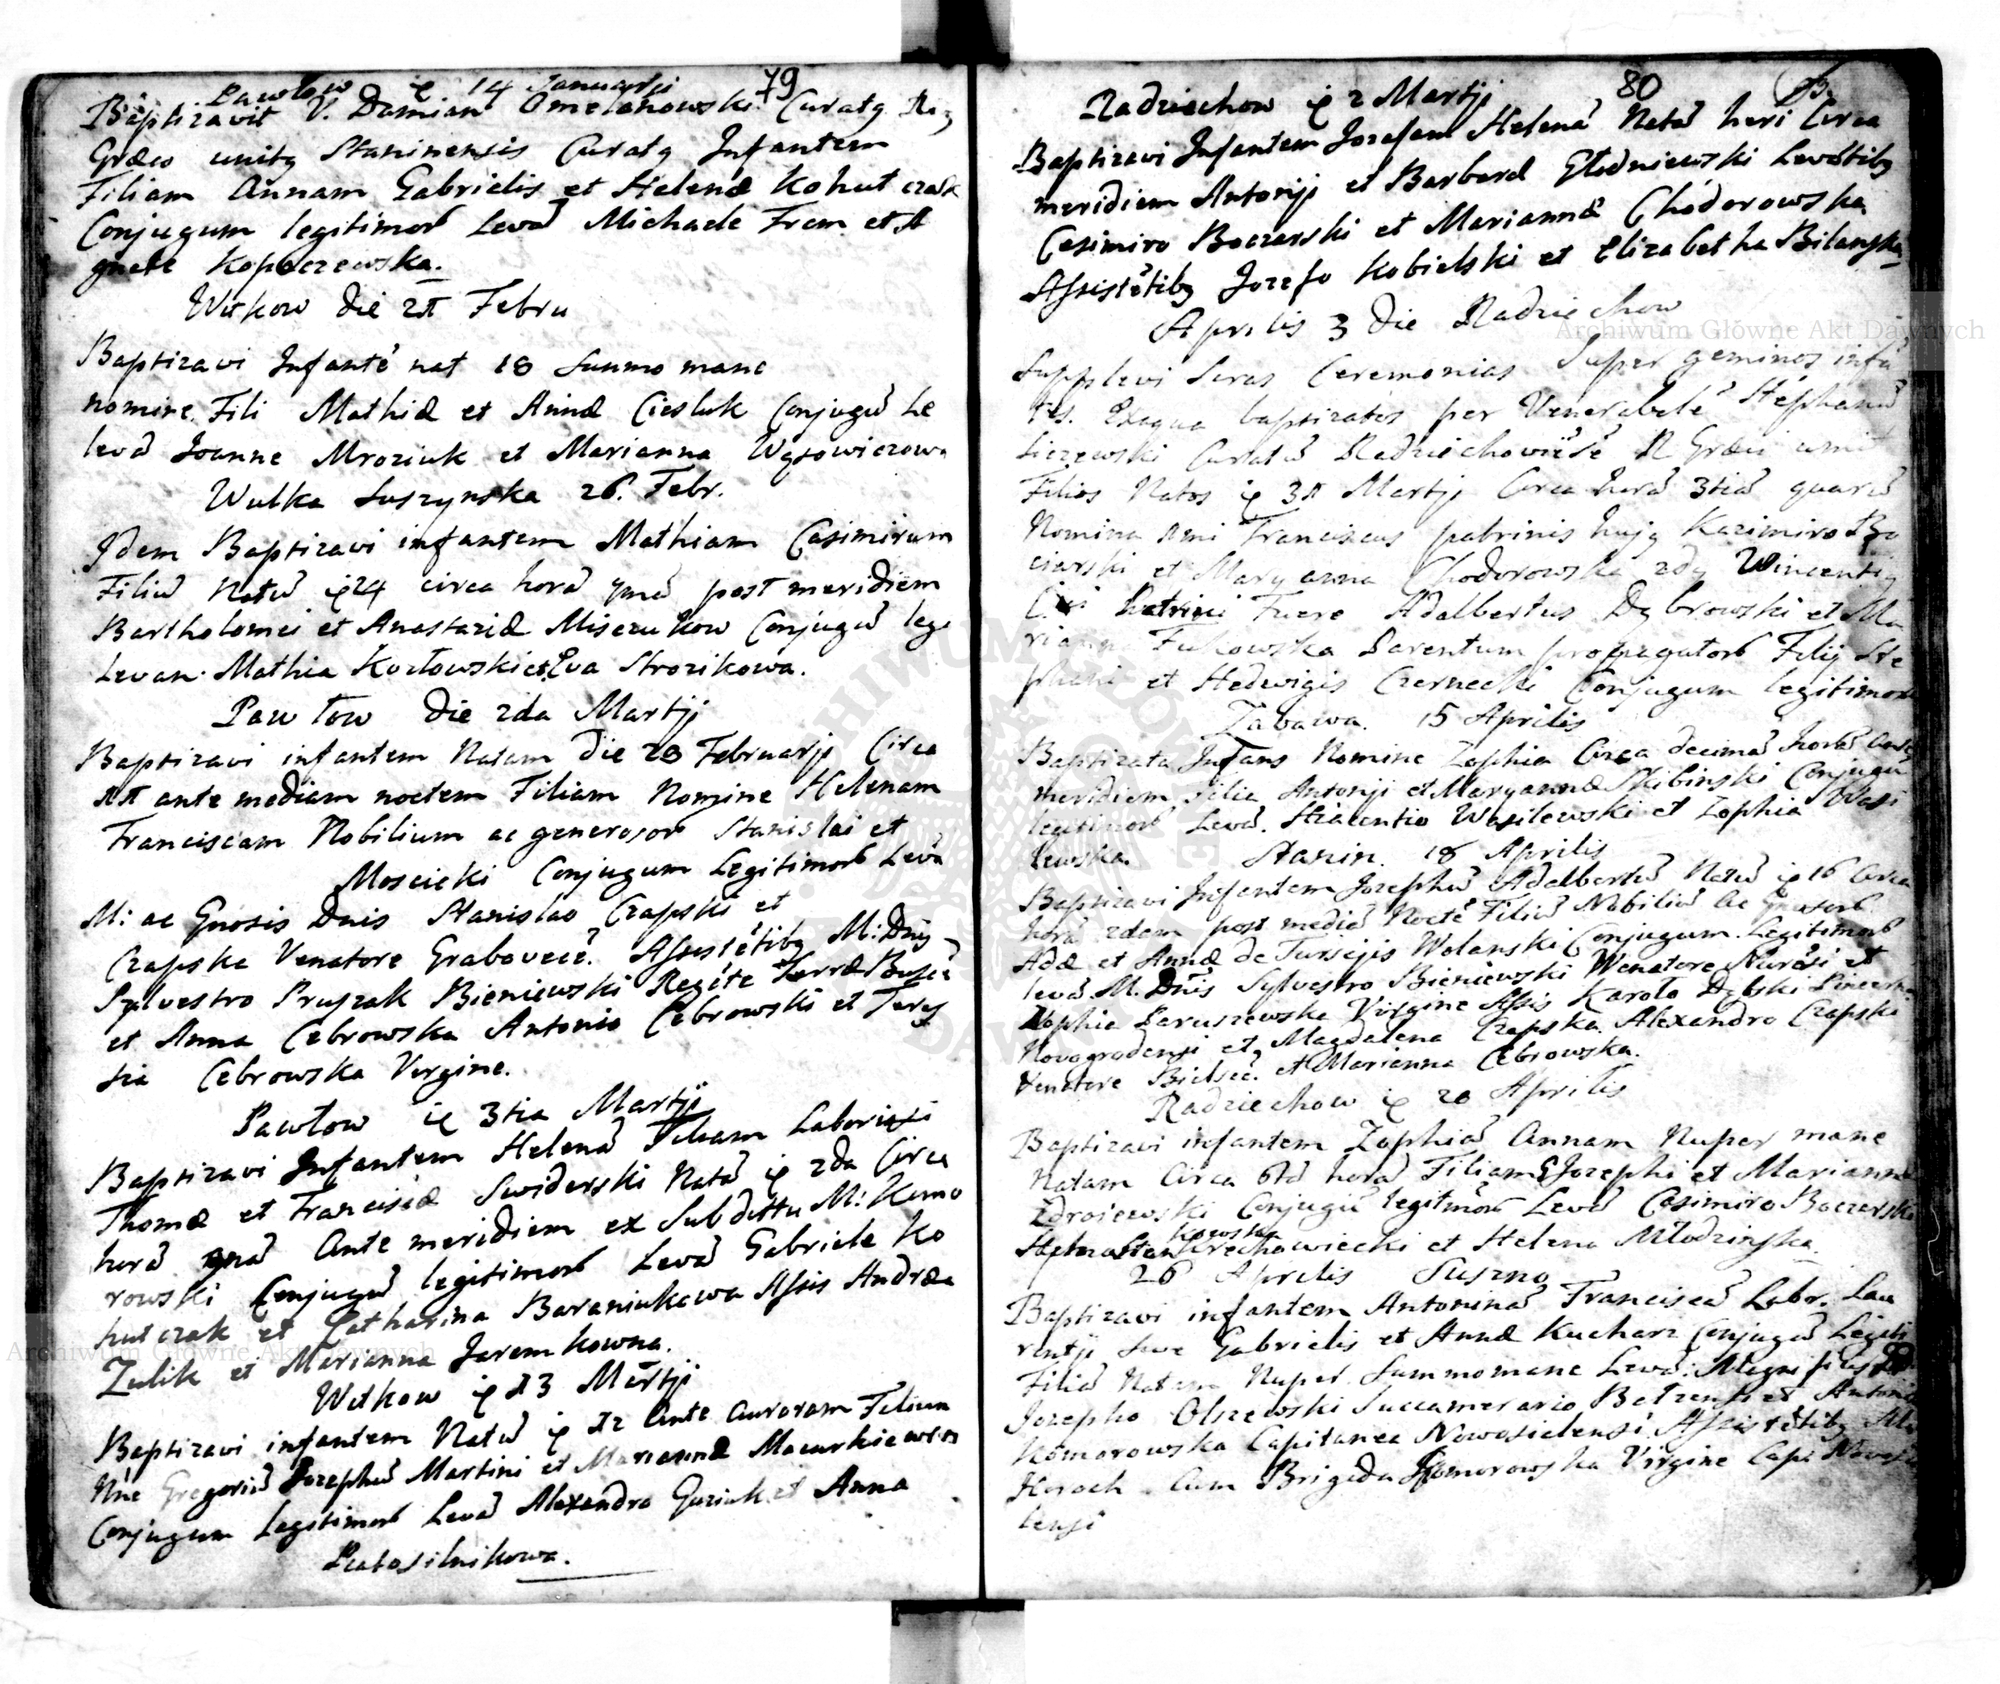 79
Pawłow 14 Januarji
Baptizavit V. Damian Omelanowski Curatg
Græco unitg Staninensis Curatg Infantem
Filiam Annam Gabrielis et Helenæ Kohut czak
Conjugum legitimor Levā Michaele Frem et A
gnete Kopeczewska.
Witkow Die 21 Febru
Baptizavi Infantē nat 18 summo mane
nomine Fili Mathiæ et Annæ Ciesluk Conjugū Le
levā Joanne Mroziuk et Marianna Wąsowiczowa
Wulka Suszynska 26. Febr.
Idem Baptizavi infantem Mathiam Casimirum
Filiū Natū 24 circa horā post meridiem
Bartholomei et Anastaziæ Miserukow Conjugū leg
Levan. Mathia Kozłowski et Eva Strozikowa.
Pawłow Die 2da Martji
Baptizavi infantem Natam Die 28 Februarji Circa
11 ante mediam noctem Filiam Nomine Helenam
Franciscam Nobilium ac generosor Stanislai et
Moscicki Conjugum Legitimor Levā
M: ac Gnosis Dnis Stanislao Czapski et
Czapska Venatore Grabovecē. Assistētibg M: Dnis
Sylvestro Pruszak Bieniewski Regēte Terræ
et Anna Cebrowska Antonio Cebrowski et Teres
sia Cebrowska Virgine.
Pawłow 3tia Martji
Baptizavi Infantem Helenā Filiam Laboriosi
Thomæ et Franciscæ Swiderski Natā 2da Circa
horā Ante meridiem ex Subdittu M: Komo
rowski Conjugū legitimor Levā Gabriele Ko
hutczak et Catharina Baraniukowa Assis Andrea
Zulik et Marianna Jaremkowna.
Witkow 13 Martji
Baptizavi infantem Natū 12 Ante Auroram Filium
Nne Gregoriū Josephū Martini et Mariannæ Mazurkiewicz
Conjugum Legitimor Levā Alexandro Guziuk et Anna
80
Radziechow 2 Martji
Baptizavi Infantem Josefam Helenā Natā heri Circa
meridiem Antonji et Barbaræ Głodniewski Levātibg
Casimiro Boczarski et Mariannæ Chódorowska
Assistētibg Jozefo Kobielski et Elizabetha Bilanska
Aprilis 3 Die Radziechow
Supplevi Sacras Ceremonias Super geminos infā
tes. Ex aqua baptizatos per Venerabilē Stephanū
Curatū Radziechowiēsē R Græci unit
Filios Natos 31 Martji Circa horā 3tiā quarū
Nomina Imi Franciscus patrinis hujg Kazimiro Bo
czarski et Maryanna Chodorowska 2dg Wincentig
Patrini Fuere Adalbertus Dąbrowski et Ma
rianna Fukowska Parentum propagator Filij Ste
phani et Hedwigis Czernecki Conjugum legitimor
Zabawa. 15 Aprilis
Baptizata Infans Nomine Zophia Circa decimā horā ante
meridiem filia Antonji et Maryannæ Skibinski Conjugū
legitimor Levā. Hiacentio Wasilewski et Zophia Wasi
lewska. Stanin. 18 Aprilis
Baptizavi Infantem Josephū Adalbertū Natū 16 Circa
horā 2dam post mediā Noctē Filiū Nobiliū ac Gnosor
Adæ et Annæ de Wolanski Conjugum Legitimor
levā M. Dnis Sylvestro Bieniewski Wenatore et
Zophia Paruszewska Virgine Assis Karolo Dąbski Pincerna
Novogrodensi et Magdalena Czapska Alexandro Czapski
Venatore Bielscē. et Marianna Cebrowska.
Radziechow 20 Aprilis
Baptizavi infantem Zophiā Annam Nuper mane
Natam Circa 6tā horā Filiam Josephi et Mariannæ
Zdroiewski Conjugū legitimor Levā Casimiro Boczarski
kowska
Krechowiecki et Helena Młodzinska
26 Aprilis Suszno
Baptizavi infantem Antoninā Franciscā Labor. Lau
rentji sive Gabrielis et Annæ Kucharz Conjugū Legiti
Filiā Natam Nuper Summo mane Levā:
Josepho Olszewski Succamerario Betzensi et Antonia
Komorowska Capitanea Nowosielensi. Assistētibg
cum Brigida Komorowska Virgine Capi Novosie
lensi